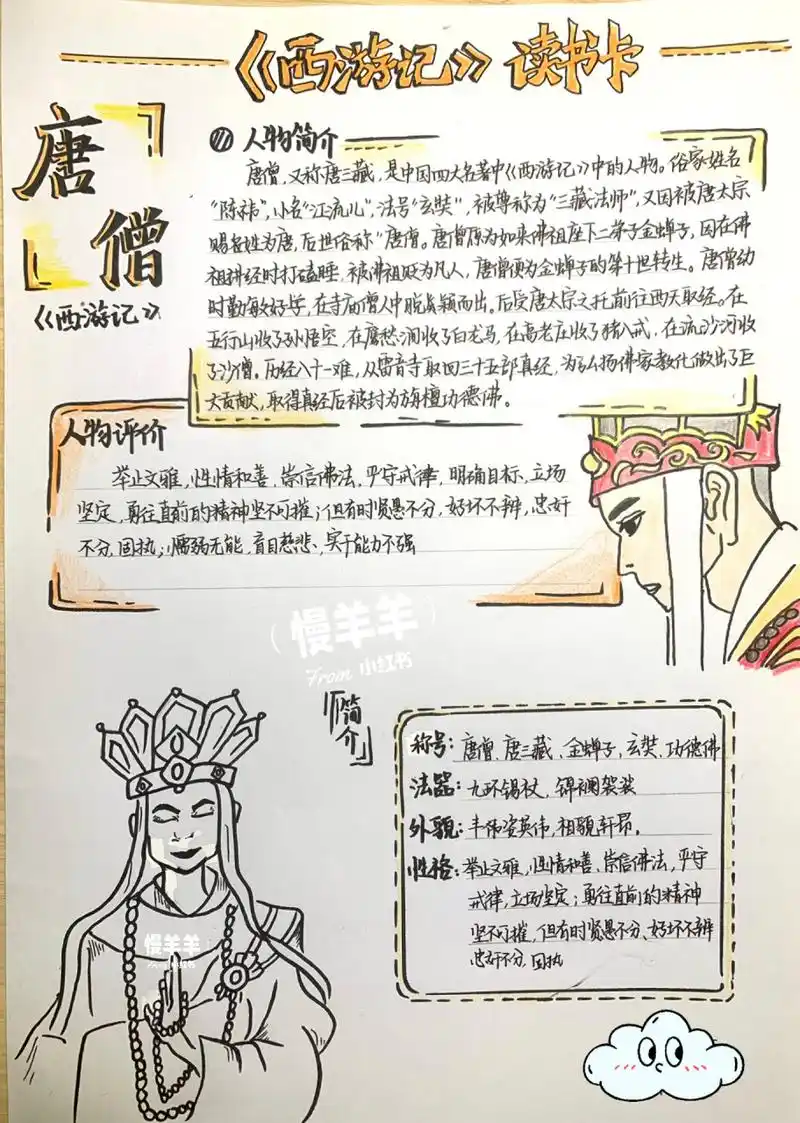 《西游记》读书卡
唐
僧
《西游记》
人物简介
唐僧,又称唐三藏,是中国四大名著中《西游记》中的人物。俗家姓名
“陈祎”,小名“江流儿”,法号“玄奘”,被尊称为“三藏法师”,又因被唐太宗
赐名姓为唐,后世俗称“唐僧。唐僧原为如来佛祖座下二弟子金蝉子,因在佛
祖讲经时打磕睡,被佛祖贬为凡人,唐僧便为金蝉子的第十世转生。唐僧幼
时勤敏好学,在寺庙僧人中脱颖而出。后受唐太宗之托前往西天取经。在
五行山收了孙悟空,在鹰愁涧收了白龙马,在高老庄收了猪八戒,在流沙河收
了沙僧。历经八十一难,从雷音寺取回三十五部真经,为弘扬佛家教化做出了巨
大贡献,取得真经后被封为旃檀功德佛。
人物评价
举止文雅,性情和善,崇信佛法,严守戒律,明确目标,立场
坚定,勇往直前的精神坚不可摧;但有时贤愚不分,好坏不辨,忠奸
不分,固执;懦弱无能,盲目慈悲、实干能力不强
(慢羊羊)
From 小红书
「简介」
称号:唐僧、唐三藏、金蝉子、玄奘、功德佛
法器:九环锡杖,锦襕袈裟
外貌:丰伟姿英伟,相貌轩昂。
性格:举止文雅,性情和善、崇信佛法,严守
戒律,立场坚定;勇往直前的精神
坚不可摧,但有时贤愚不分、好坏不辨
忠奸不分,固执
慢羊羊
From 小红书